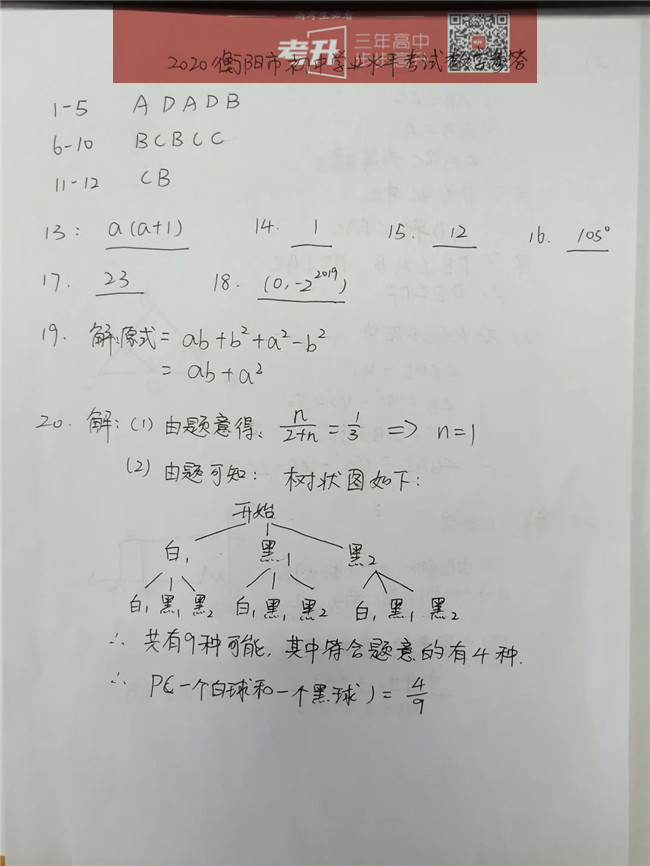 考升 三年高中
2020衡阳市初中学业水平考试数学卷答
1-5 A D A D B
6-10 B C B C C
11-12 C B
13: a(a+1) 14. 1 15. 12 16. 105°
17. 23 18. (0,-2^2019)
19. 解:原式= ab+b²+a²-b²
= ab+a²
20. 解: (1) 由题意得: n/(2+n) = 1/3 => n=1
(2) 由题可知: 树状图如下:
开始
白₁ 黑₁ 黑₂
白₁ 黑₁ 黑₂ 白₁ 黑₁ 黑₂ 白₁ 黑₁ 黑₂
∴ 共有9种可能, 其中符合题意的有4种.
∴ P(一个白球和一个黑球) = 4/9